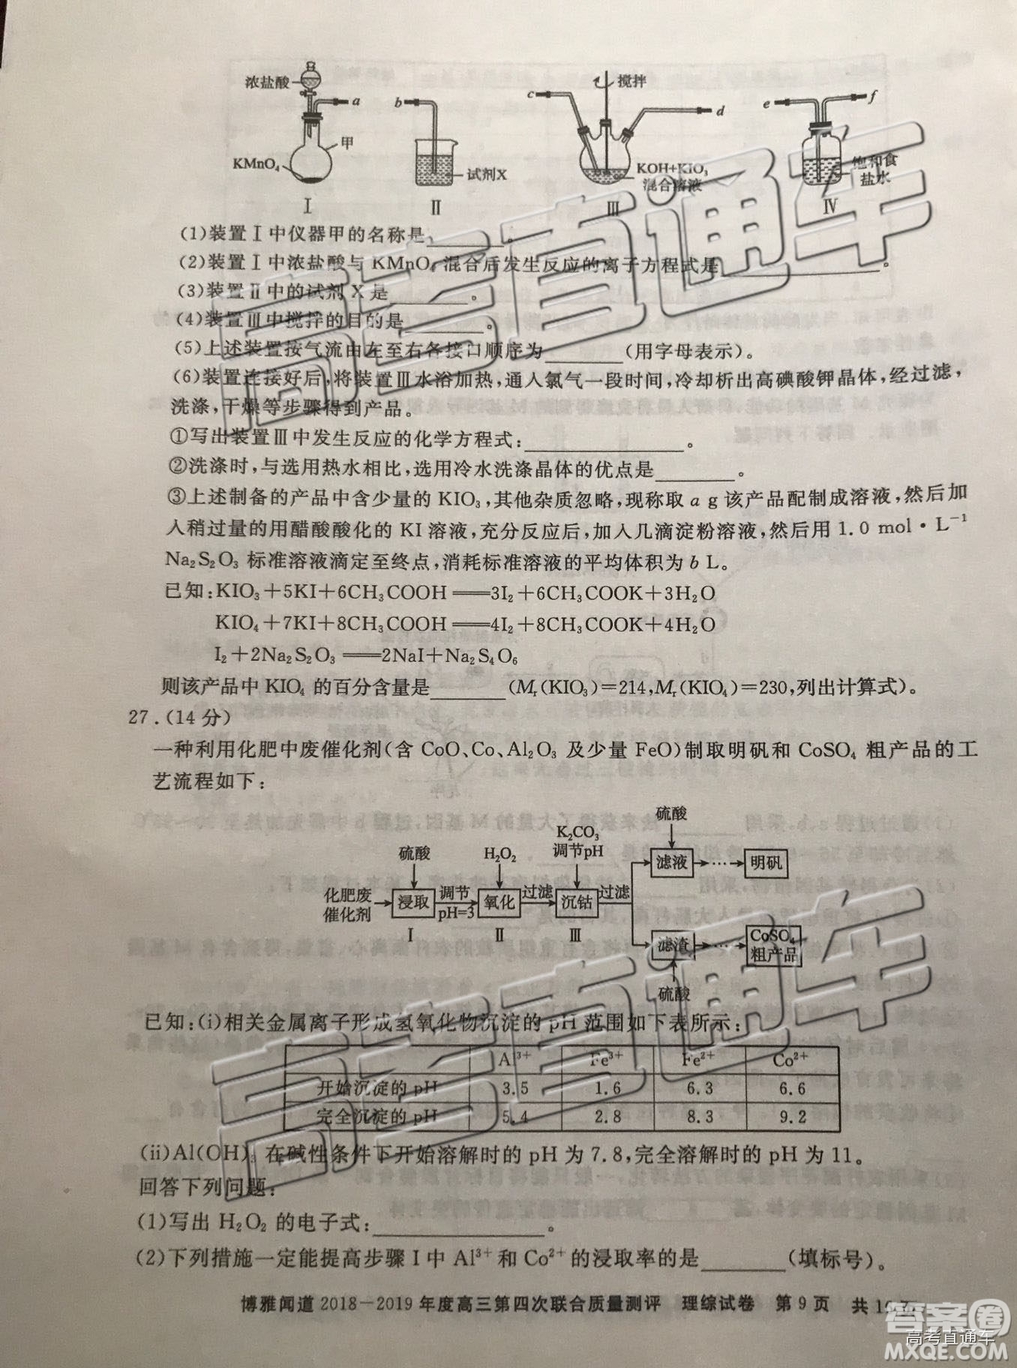 浓盐酸 a b c 搅拌 d e f
甲
KMnO₄ 试剂X KOH+KIO₃ 混合溶液 饱和食盐水
Ⅰ Ⅱ Ⅲ Ⅳ
(1)装置Ⅰ中仪器甲的名称是________。
(2)装置Ⅰ中浓盐酸与 KMnO₄ 混合后发生反应的离子方程式是________。
(3)装置Ⅱ中的试剂 X 是________。
(4)装置Ⅲ中搅拌的目的是________。
(5)上述装置按气流由左至右各接口顺序为________(用字母表示)。
(6)装置连接好后,将装置Ⅲ水浴加热,通入氯气一段时间,冷却析出高碘酸钾晶体,经过滤,
洗涤,干燥等步骤得到产品。
①写出装置Ⅲ中发生反应的化学方程式:________。
②洗涤时,与选用热水相比,选用冷水洗涤晶体的优点是________。
③上述制备的产品中含少量的 KIO₃,其他杂质忽略,现称取 a g 该产品配制成溶液,然后加
入稍过量的用醋酸酸化的 KI 溶液,充分反应后,加入几滴淀粉溶液,然后用 1.0 mol·L⁻¹
Na₂S₂O₃ 标准溶液滴定至终点,消耗标准溶液的平均体积为 b L。
已知:KIO₃+5KI+6CH₃COOH══3I₂+6CH₃COOK+3H₂O
KIO₄+7KI+8CH₃COOH══4I₂+8CH₃COOK+4H₂O
I₂+2Na₂S₂O₃══2NaI+Na₂S₄O₆
则该产品中 KIO₄ 的百分含量是________(Mᵣ(KIO₃)=214,Mᵣ(KIO₄)=230,列出计算式)。
27.(14 分)
一种利用化肥中废催化剂(含 CoO、Co、Al₂O₃ 及少量 FeO)制取明矾和 CoSO₄ 粗产品的工
艺流程如下:
硫酸
K₂CO₃
硫酸 H₂O₂ 调节pH 滤液 ⋯ 明矾
化肥废催化剂 浸取 调节pH=3 氧化 过滤 沉钴 过滤
Ⅰ Ⅱ Ⅲ
滤渣 ⋯ CoSO₄粗产品
硫酸
已知:(i)相关金属离子形成氢氧化物沉淀的 pH 范围如下表所示:
Al³⁺ Fe³⁺ Fe²⁺ Co²⁺
开始沉淀的 pH 3.5 1.6 6.3 6.6
完全沉淀的 pH 5.4 2.8 8.3 9.2
(ii)Al(OH)₃ 在碱性条件下开始溶解时的 pH 为 7.8,完全溶解时的 pH 为 11。
回答下列问题:
(1)写出 H₂O₂ 的电子式:________。
(2)下列措施一定能提高步骤Ⅰ中 Al³⁺ 和 Co²⁺ 的浸取率的是________(填标号)。
博雅闻道 2018－2019 年度高三第四次联合质量测评 理综试卷 第 9 页 共
高考直通车
高考直通车
答案圈
高考直通车
MXQE.COM